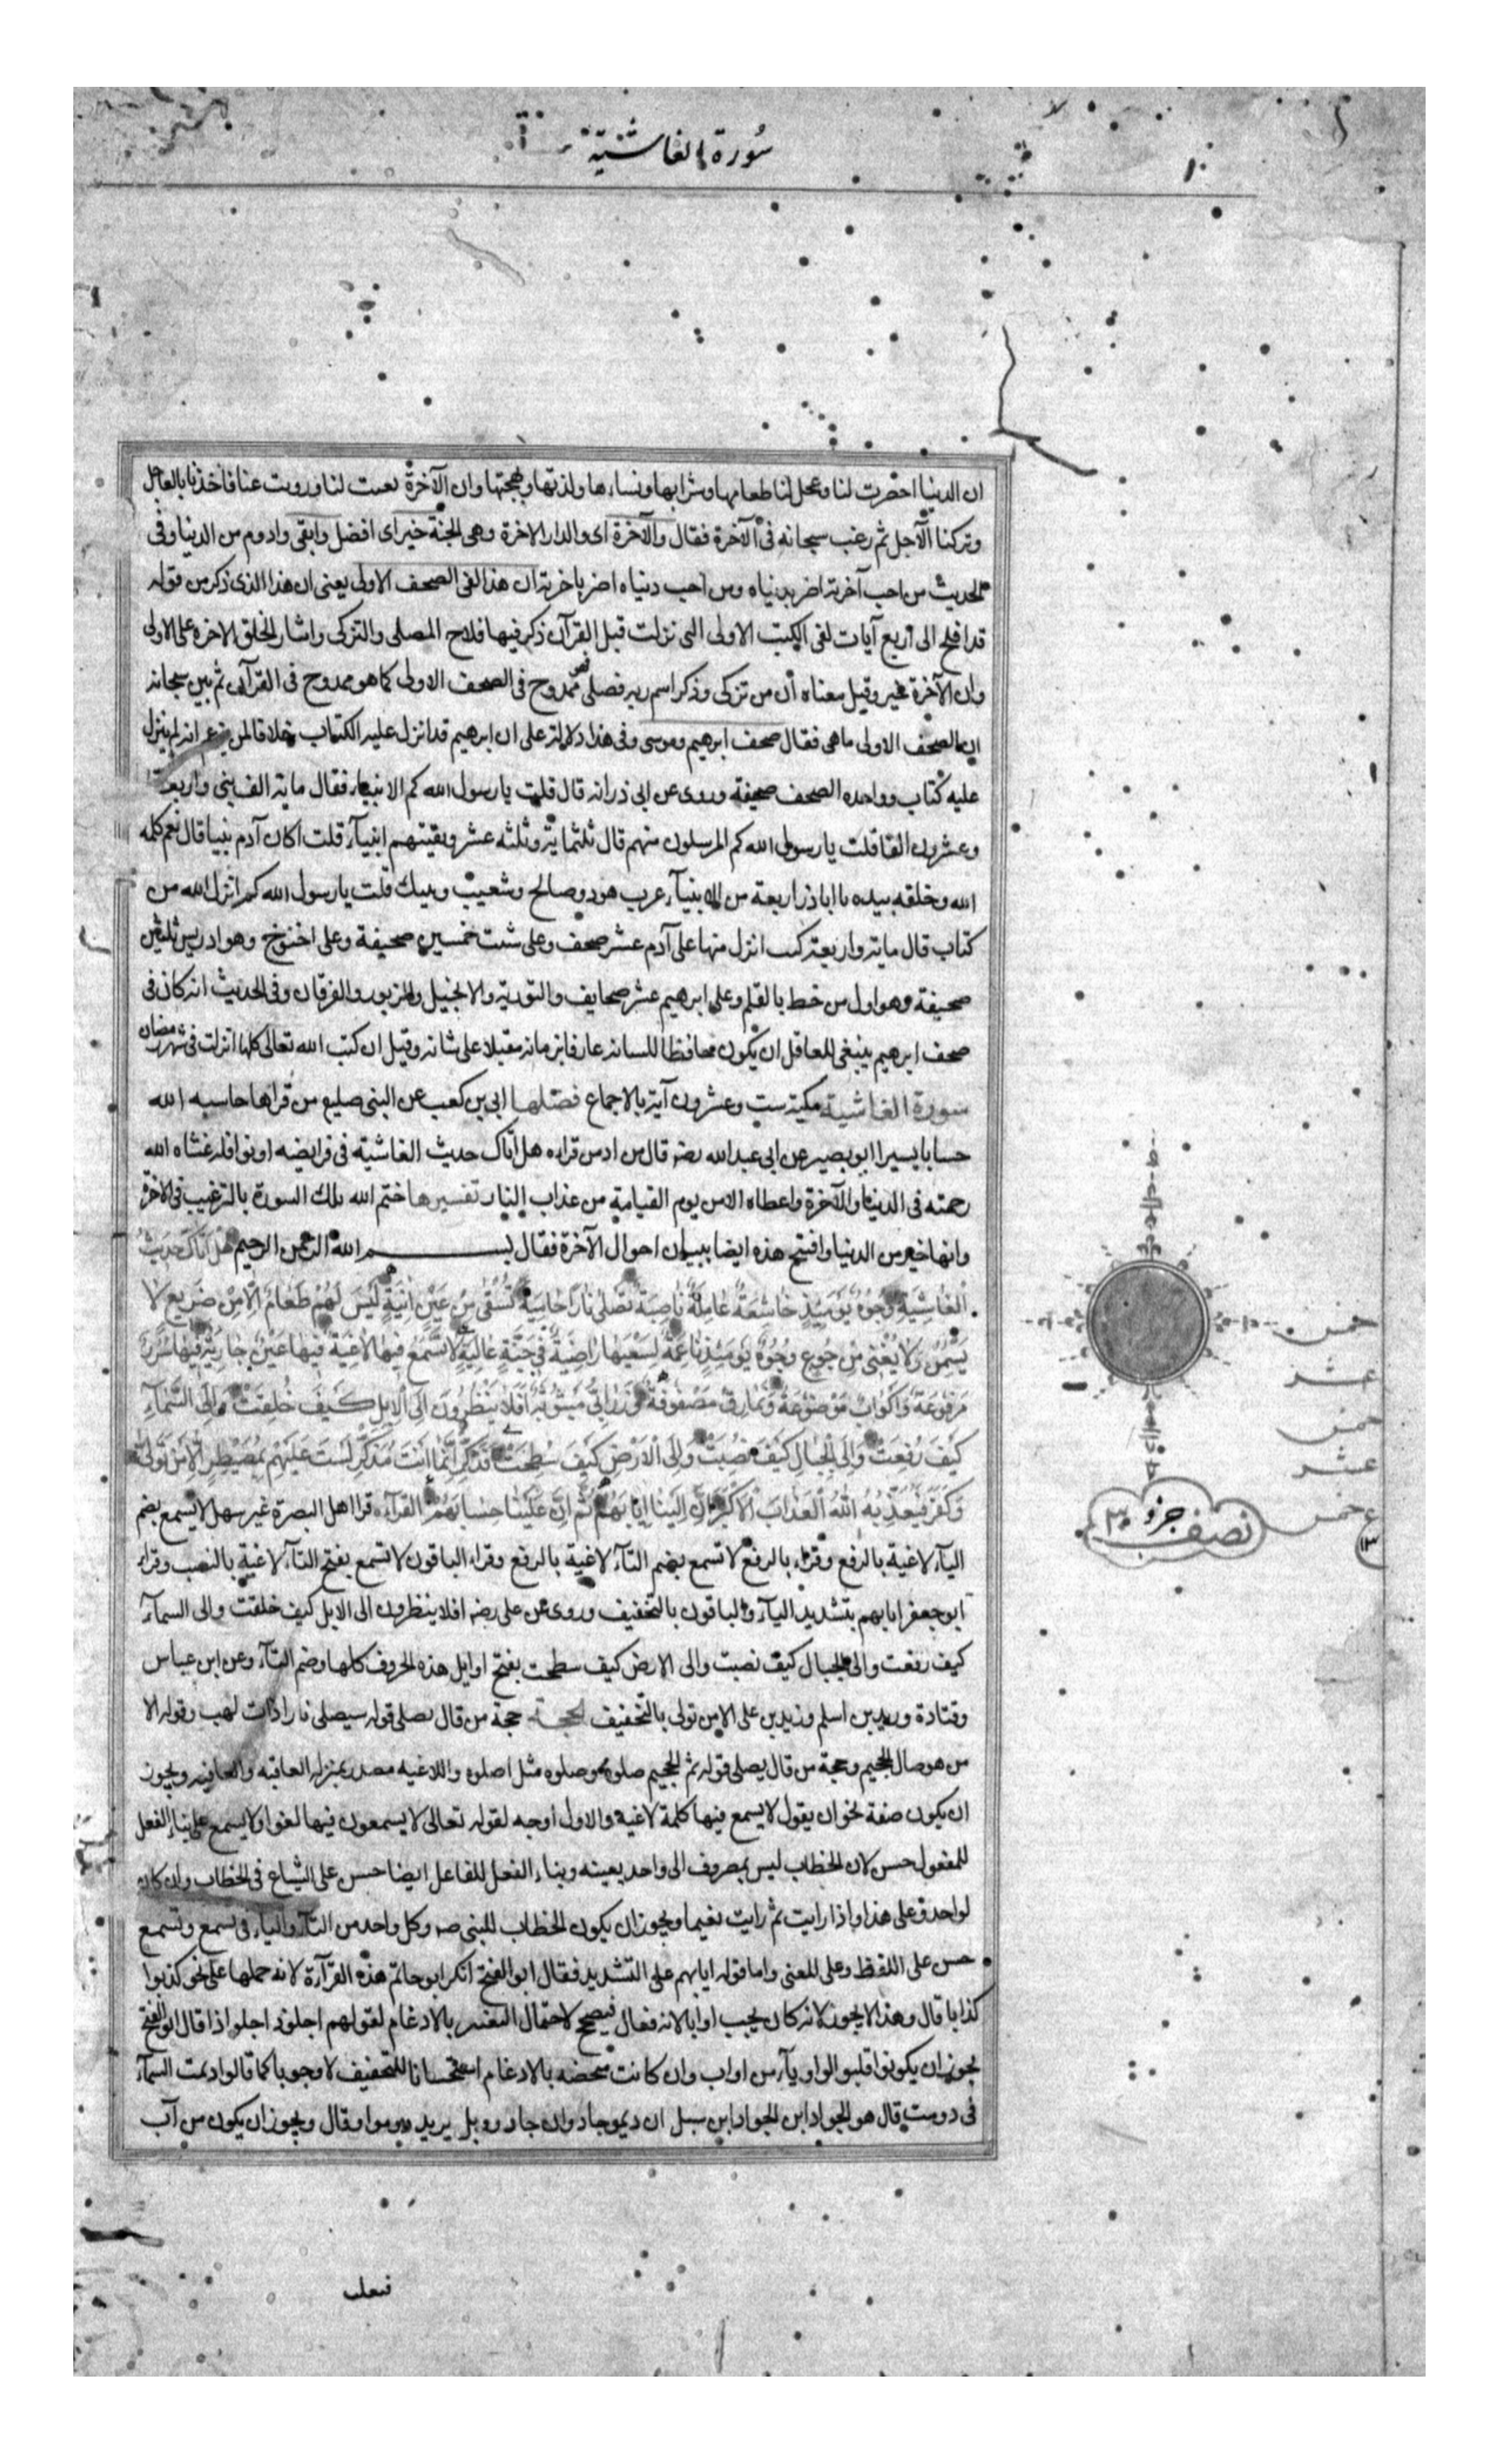 سورة الغاشية
ان الدنيا احضرت لنا وعجل لنا طعامها وشرابها ونساءها ولذتها وبهجتها وان الآخرة نعتت لنا وزويت عنا فاخذنا بالعاجل
وتركنا الآجل ثم رغب سبحانه فى الآخرة فقال والآخرة اى والدار الاخرة وهى الجنة خير اى افضل وابقى وادوم من الدنيا وفى
الحديث من احب آخرته اضر بدنياه ومن احب دنياه اضر باخرته ان هذا لفى الصحف الاولى يعنى ان هذا الذى ذكر من قوله
قد افلح الى اربع آيات لفى الكتب الاولى التى نزلت قبل القرآن ذكر فيها فلاح المصلى والتزكى واشار الخلق الاخرة على الاولى
وان الآخرة خير وقيل معناه أن من تزكى وذكر اسم ربه فصلى فهو ممدوح فى الصحف الاولى كما هو ممدوح فى القرآن ثم بين سبحانه
ان الصحف الاولى ما هى فقال صحف ابرهيم وموسى وفى هذا دلالة على ان ابرهيم قد انزل عليه الكتاب خلافا لمن يزعم انه لم ينزل
عليه كتاب وواحدة الصحف صحيفة وروى عن ابى ذر انه قال قلت يا رسول الله كم الانبياء فقال ماية الف نبى واربعة
وعشرون الفا قلت يا رسول الله كم المرسلون منهم قال ثلثماية وثلثه عشر وبقيتهم انبيآء قلت اكان آدم نبيا قال نعم كلمه
الله وخلقه بيده يا اباذر اربعة من الانبيآء عرب هود وصالح وشعيب ونبيك قلت يا رسول الله كم انزل الله من
كتاب قال ماية واربعة كتب انزل منها على آدم عشر صحف وعلى شيت خمسين صحيفة وعلى اخنوخ وهو ادريس ثلثين
صحيفة وهو اول من خط بالقلم وعلى ابرهيم عشر صحايف والتورية والانجيل والزبور والفرقان وفى الحديث انه كان فى
صحف ابرهيم ينبغى للعاقل ان يكون محافظا للسانه عارفا بزمانه مقبلا على شانه وقيل ان كتب الله تعالى كلها انزلت فى شهر رمضان
سورة الغاشية مكية ست وعشرون آية بالاجماع فضلها ابى بن كعب عن النبى صليع من قراها حاسبه الله
حسابا يسيرا ابو بصير عن ابى عبد الله رضه قال من ادمن قراءه هل اتاك حديث الغاشية فى فرايضه او نوافله غشاه الله
رحمته فى الدنيا والآخرة واعطاه الامن يوم القيامة من عذاب النار تفسيرها ختم الله تلك السورة بالترغيب فى الاخرة
وانها خير من الدنيا وافتتح هذه ايضا ببيان احوال الآخرة فقال بسم الله الرحمن الرحيم هل اتاك حديث
الْغَاشِيَةِ وُجُوهٌ يَوْمَئِذٍ خَاشِعَةٌ عَامِلَةٌ نَاصِبَةٌ تَصْلَى نَارًا حَامِيَةً تُسْقَى مِنْ عَيْنٍ آنِيَةٍ لَيْسَ لَهُمْ طَعَامٌ اِلَّا مِنْ ضَرِيعٍ لَا
يُسْمِنُ وَلَا يُغْنِى مِنْ جُوعٍ وُجُوهٌ يَوْمَئِذٍ نَاعِمَةٌ لِسَعْيِهَا رَاضِيَةٌ فِى جَنَّةٍ عَالِيَةٍ لَا تَسْمَعُ فِيهَا لَاغِيَةً فِيهَا عَيْنٌ جَارِيَةٌ فِيهَا سُرُرٌ
مَرْفُوعَةٌ وَاَكْوَابٌ مَوْضُوعَةٌ وَنَمَارِقُ مَصْفُوفَةٌ وَزَرَابِىُّ مَبْثُوثَةٌ اَفَلَا يَنْظُرُونَ اِلَى الْاِبِلِ كَيْفَ خُلِقَتْ وَاِلَى السَّمَآءِ
كَيْفَ رُفِعَتْ وَاِلَى الْجِبَالِ كَيْفَ نُصِبَتْ وَاِلَى الْاَرْضِ كَيْفَ سُطِحَتْ فَذَكِّرْ اِنَّمَا اَنْتَ مُذَكِّرٌ لَسْتَ عَلَيْهِمْ بِمُصَيْطِرٍ اِلَّا مَنْ تَوَلَّى
وَكَفَرَ فَيُعَذِّبُهُ اللهُ الْعَذَابَ الْاَكْبَرَ اِنَّ اِلَيْنَا اِيَابَهُمْ ثُمَّ اِنَّ عَلَيْنَا حِسَابَهُمْ القرآءه قرا اهل البصرة غير سهل لا يسمع بضم
اليآء لاغية بالرفع وقراء بالرفع لا تسمع بضم التآء لاغية بالرفع وقراء الباقون لا تسمع بفتح التآء لاغية بالنصب وقراء
ابو جعفر ايابهم بتشديد اليآء والباقون بالتخفيف وروى عن على رضه افلا ينظرون الى الابل كيف خلقت والى السمآء
كيف رفعت والى الجبال كيف نصبت والى الارض كيف سطحت بفتح اوايل هذه الحروف كلها وضم التآء وعن ابن عباس
وقتادة وزيد بن اسلم وزيد بن على الا من تولى بالتخفيف الحجة حجة من قال يصلى قوله سيصلى نارا ذات لهب وقوله الا
من هو صال الجحيم وحجة من قال يصلى قوله ثم الجحيم صلوه وصلوه مثل اصلوه واللاغيه مصدر بمنزلة العاقبه والعافيه ويجوز
ان يكون صفة نحو ان يقول لا يسمع فيها كلمة لاغية والاول اوجه لقوله تعالى لا يسمعون فيها لغوا ولا يسمع على بناء الفعل
للمفعول حسن لان الخطاب ليس بمصروف الى واحد بعينه وبناء الفعل للفاعل ايضا حسن على الشياع فى الخطاب وان كان
لواحد وعلى هذا واذا رايت ثم رايت نعيما ويجوز ان يكون الخطاب للنبى صه وكل واحد من التآء واليآء فى يسمع وتسمع
حسن على اللفظ وعلى المعنى واما قوله ايابهم على التشديد فقال ابو الفتح انكر ابو حاتم هذه القرآءة لانه حملها على نحو كذبوا
كذابا قال وهذا لا يجوز لانه كان يجب اوابا لانه فعال فيصح لاحتمال العين بالادغام لقولهم اجلوذ اجلواذا قال ابو الفتح
يجوز ان يكونوا قلبوا الواو يآء من اواب وان كانت متحصنه بالادغام استحسانا للتخفيف لا وجوبا كما قالوا ديمت السمآء
فى دومت قال هو الجواد ابن الجواد ابن سبل ان ديموا جاد وان جادوا وبل يريد دوموا وقال ويجوز ان يكون من آب
خمس
عشر
خمس
عشر
خمس
ع
نصف جزو ٣٠
فيعلت